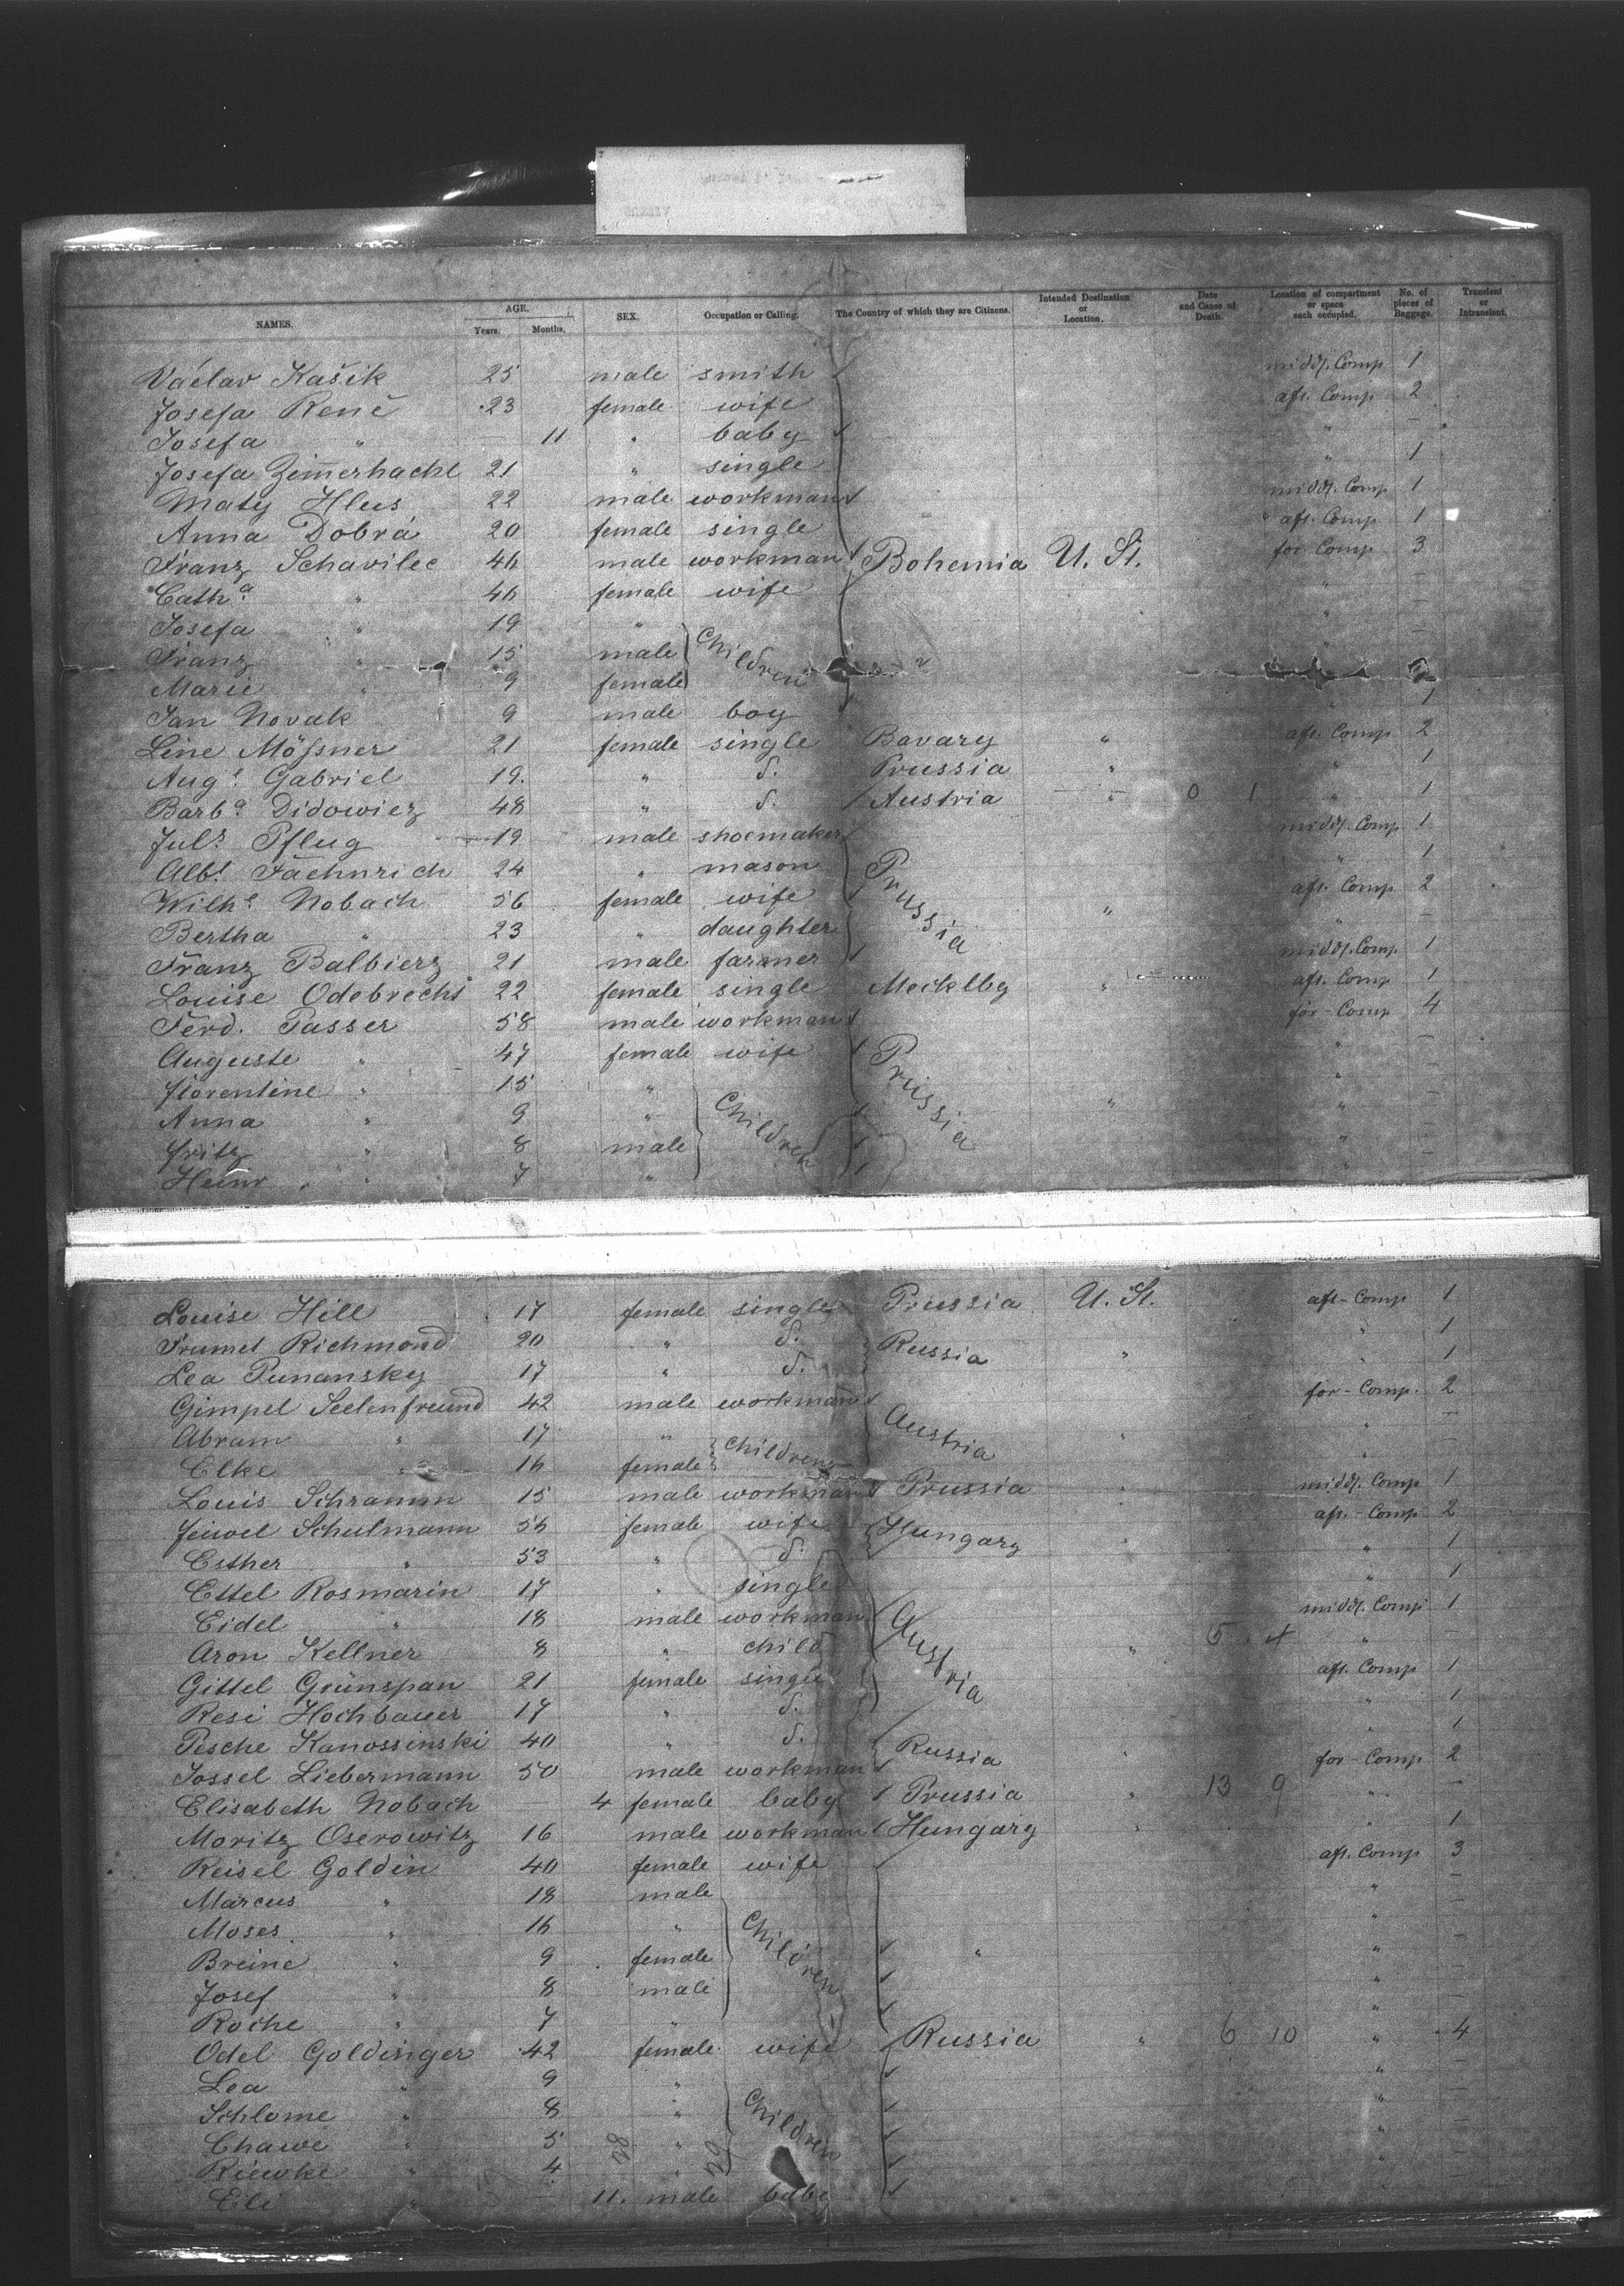 NAMES. AGE. Years. Months. SEX. Occupation or Calling. The Country of which they are Citizens. Intended Destination or Location. Date and Cause of Death. Location of compartment or space each occupied. No. of pieces of Baggage. Transient or Intransient.
Václav Kašik 25 male smith midd. Comp 1
Josefa René 23 female wife aft. Comp 2
Josefa " 11 " baby " –
Josefa Zimerhackl 21 " single " 1
Maty Hlus 22 male workman midd. Comp 1
Anna Dobrá 20 female single aft. Comp 1
Franz Schavilec 46 male workman Bohemia U. St. for Comp 3
Cath.a " 46 female wife " –
Josefa " 19 " " –
Franz " 15 male Children "
Marie " 9 female
Jan Novak 9 male boy " 1
Line Mößner 21 female single Bavary " aft. Comp 2
Aug.e Gabriel 19. " d. Prussia " " 1
Barb.a Didowiez 48 " d. Austria " 0 1 " 1
Jul.s Pflug 19 male shoemaker midd. Comp 1
Alb.t Faehnrich 24 " mason Prussia " 1
Wilh.e Nobach 56 female wife " aft. Comp 2
Bertha " 23 " daughter " –
Franz Balbierz 21 male farmer midd. Comp 1
Louise Odebrecht 22 female single Mecklbg " aft. Comp 1
Ferd. Passer 58 male workman for-Comp 4
Auguste " 47 female wife Prussia " –
Florentine " 15 " " –
Anna " 9 " Children " "
Fritz " 8 male " –
Heinr " 7 " " –
Louise Hill 17 female single Prussia U. St. aft-Comp 1
Frumet Richmond 20 " d. Russia " " 1
Lea Punansky 17 " d. " 1
Gimpel Seelenfreund 42 male workman for-Comp. 2
Abram " 17 " Children Austria " " –
Elke " 16 female "
Louis Schramm 15 male workman Prussia " midd. Comp 1
Feiwel Schulmann 56 female wife Hungary " aft.-Comp 2
Esther " 53 " d. " 1
Ettel Rosmarin 17 " single " 1
Eidel " 18 male workman Austria midd. Comp 1
Aron Kellner 8 " child " 5 " –
Gittel Grünspan 21 female single aft. Comp 1
Resi Hochbauer 17 " d. " 1
Pesche Kanossinski 40 " d. Russia " " 1
Jossel Liebermann 50 male workman for-Comp 2
Elisabeth Nobach – 4 female baby Prussia " 13 9 " –
Moritz Oserowitz 16 male workman Hungary " " 1
Reisel Goldin 40 female wife aft. Comp 3
Marcus " 18 male Children " –
Moses " 16 " " –
Breine " 9 female " " –
Josef " 8 male " –
Roche " 7 " " –
Odel Goldinger 42 female wife Russia " 6 10 " 4
Lea " 9 " Children " –
Schlome " 8 " " –
Chawe " 5 " " –
Riewke " 4 " " –
Eli " 11. male baby
28 29